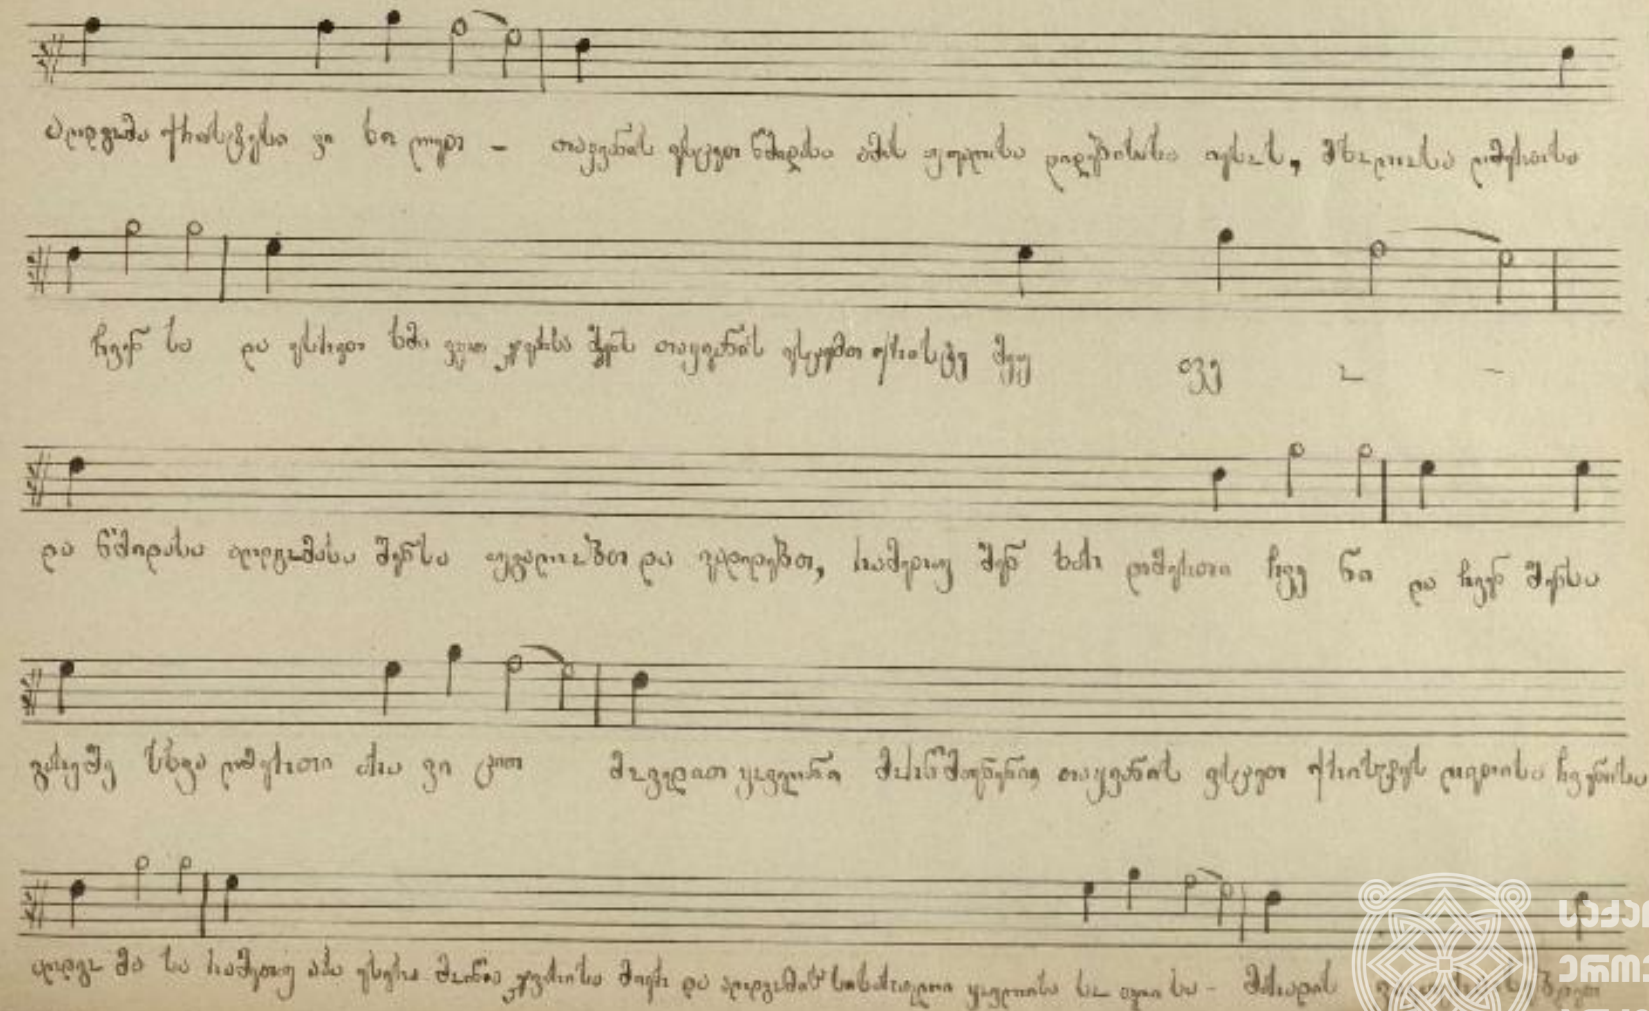 აღდგომა ქრისტესი ვი ხი ლეთ – თაყვანის ვსცეთ წმიდასა ამის უფალისა დიდებისასა იესოს, მხოლოსა ღმერთისა
ჩვენ სა და ესრეთ ხმა ვყოთ ჯვარსა შენს თაყვანის ვსცემთ ქრისტე მეუ ფე ო –
და წმიდასა აღდგომასა შენსა უგალობთ და ვადიდებთ, რამეთუ შენ ხარ ღმერთი ჩვე ნი და ჩვენ შენსა
გარეშე სხვა ღმერთი არა ვი ცით მოვედით ყოველნი მორწმუნენი თაყვანის ვსცეთ ქრისტეს ღვთისა ჩვენისა
აღდგო მა სა რამეთუ აჰა ესერა მოიწია ჯვარისა მიერ და აღდგომის სიხარული ყოვლისა სო ფლი სა – მარადის